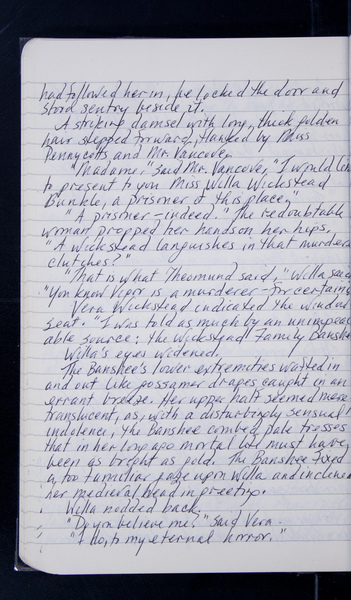 had followed her in, he locked the door and
stood sentry beside it.
A striking damsel with long, thick golden
hair stepped forward, flanked by Miss
Pennycotts and Mr. Vancover.
"Madame," said Mr. Vancover, "I would like
to present to you Miss Willa Wickstead
Bunkle, a prisoner of this place."
"A prisoner – indeed." The redoubtable
woman propped her hands on her hips.
"A Wickstead languishes in that murderer's
clutches?"
"That is what Theomund said," Willa said.
"You know Vigor is a murderer – for certain?"
Vera Wickstead indicated the window
seat. "I was told as much by an unimpeach-
able source: the Wickstead Family Banshee."
Willa's eyes widened.
The Banshee's lower extremities wafted in
and out like gossamer drapes caught in an
errant breeze. Her upper half seemed more
translucent, as, with a disturbingly sensual
indolence, the Banshee combed pale tresses
that in her long ago mortal life must have
been as bright as gold. The Banshee fixed
a too familiar gaze upon Willa and inclined
her medieval head in greeting.
Willa nodded back.
"Do you believe me?" said Vera.
"I do, to my eternal horror."